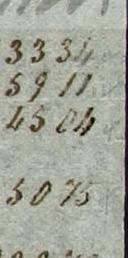 3334
5911
4504
5075